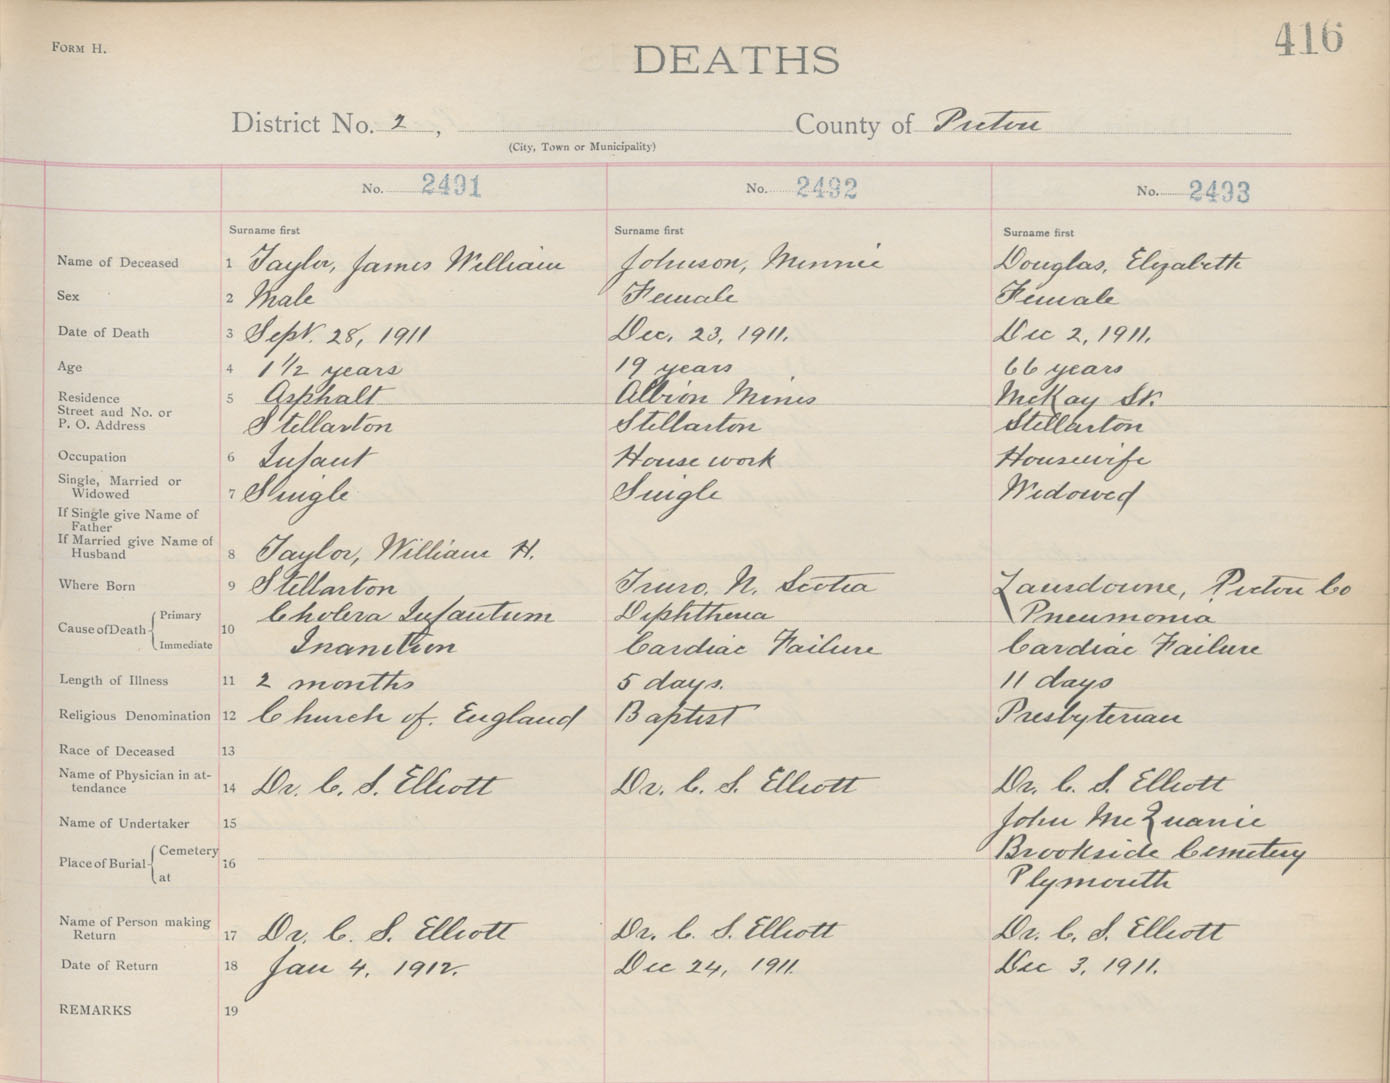 FORM H.
416
DEATHS
District No. 2, County of Pictou
(City, Town or Municipality)
No. 2491 No. 2492 No. 2493
Surname first Surname first Surname first
Name of Deceased 1 Taylor, James William Johnson, Minnie Douglas, Elizabeth
Sex 2 Male Female Female
Date of Death 3 Sept. 28, 1911 Dec. 23, 1911. Dec 2, 1911.
Age 4 1 1/2 years 19 years 66 years
Residence 5 Asphalt Albion Mines McKay St.
Street and No. or
P. O. Address Stellarton Stellarton Stellarton
Occupation 6 Infant House work Housewife
Single, Married or
Widowed 7 Single Single Widowed
If Single give Name of
Father
If Married give Name of
Husband 8 Taylor, William H.
Where Born 9 Stellarton Truro, N. Scotia Lansdowne, Pictou Co
Cause of Death Primary 10 Cholera Infantum Diphtheria Pneumonia
Immediate Inanition Cardiac Failure Cardiac Failure
Length of Illness 11 2 months 5 days. 11 days
Religious Denomination 12 Church of England Baptist Presbyterian
Race of Deceased 13
Name of Physician in at-
tendance 14 Dr. C. S. Elliott Dr. C. S. Elliott Dr. C. S. Elliott
Name of Undertaker 15 John McQuarrie
Place of Burial Cemetery 16 Brookside Cemetery
at Plymouth
Name of Person making
Return 17 Dr. C. S. Elliott Dr. C. S. Elliott Dr. C. S. Elliott
Date of Return 18 Jan 4, 1912. Dec 24, 1911 Dec 3, 1911.
REMARKS 19